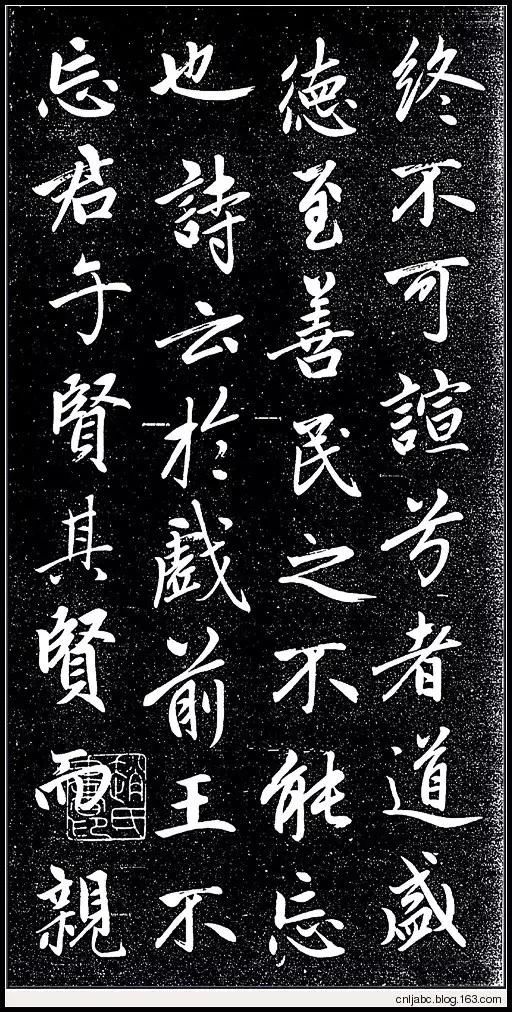 終不可諠兮者道盛
德至善民之不能忘
也詩云於戲前王不
忘君子賢其賢而親
趙氏書印
cnljabc.blog.163.com